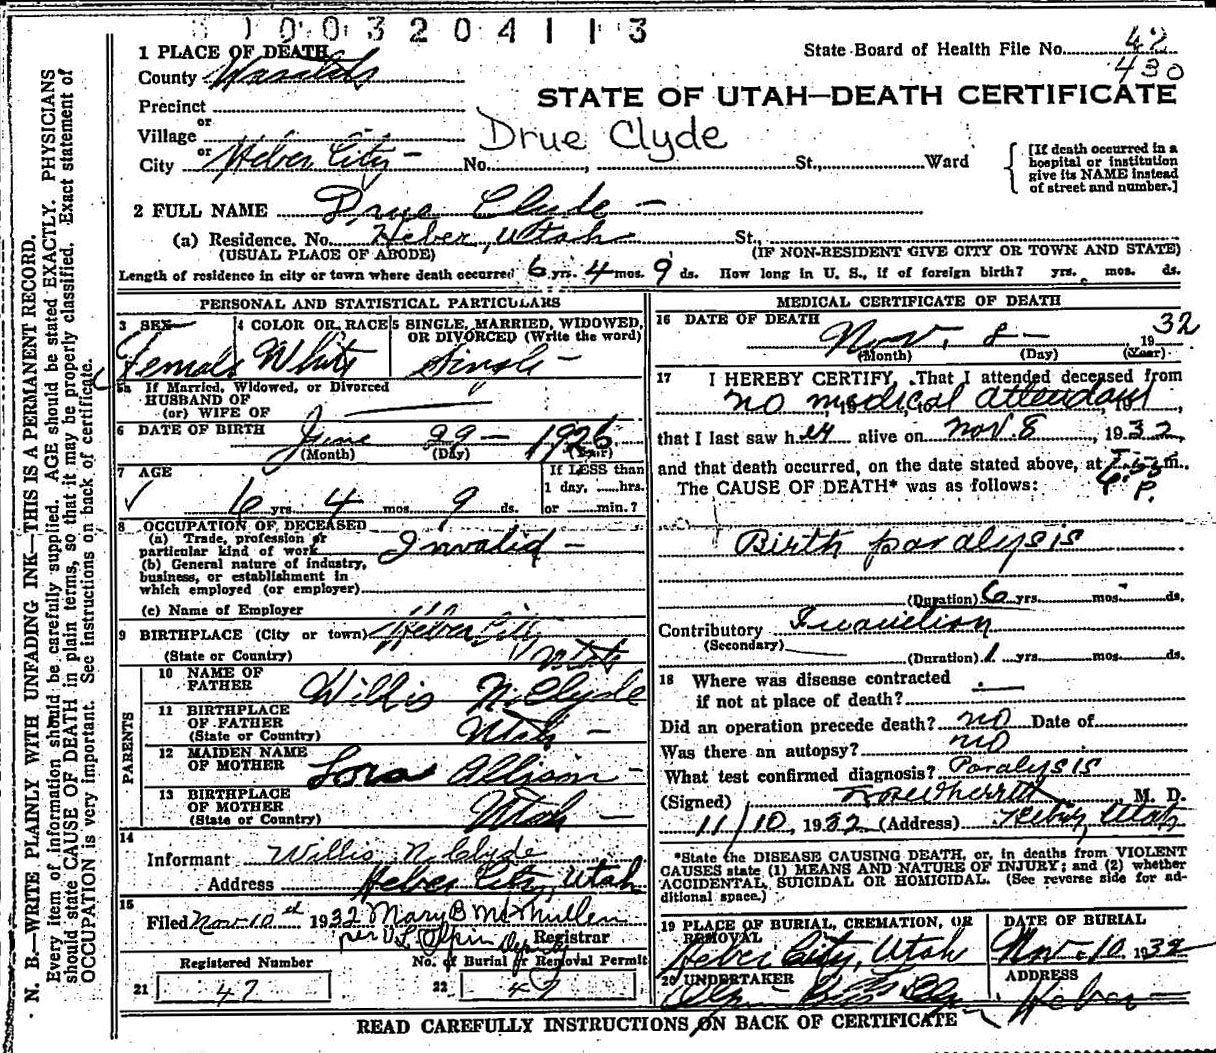 1003204113
State Board of Health File No. 42
430
1 PLACE OF DEATH
County Wasatch
STATE OF UTAH—DEATH CERTIFICATE
Precinct
or
Village
Drue Clyde
or
City Heber City — No. , St., Ward
[If death occurred in a hospital or institution give its NAME instead of street and number.]
2 FULL NAME Drue Clyde —
(a) Residence. No. Heber, Utah St.,
(USUAL PLACE OF ABODE) (IF NON-RESIDENT GIVE CITY OR TOWN AND STATE)
Length of residence in city or town where death occurred 6 yrs. 4 mos. 9 ds. How long in U. S., if of foreign birth? yrs. mos. ds.
PERSONAL AND STATISTICAL PARTICULARS
3 SEX
Female
4 COLOR OR RACE
White
5 SINGLE, MARRIED, WIDOWED, OR DIVORCED (Write the word)
Single —
5a If Married, Widowed, or Divorced
HUSBAND OF
(or) WIFE OF
6 DATE OF BIRTH
June 29 — 1926
(Month) (Day) (Year)
7 AGE
6 yrs 4 mos. 9 ds.
If LESS than
1 day, ......hrs.
or ......min.?
8 OCCUPATION OF DECEASED
(a) Trade, profession or
particular kind of work Invalid —
(b) General nature of industry,
business, or establishment in
which employed (or employer)
(c) Name of Employer
9 BIRTHPLACE (City or town) Heber City
(State or Country) Utah
PARENTS
10 NAME OF
FATHER Willis N. Clyde
11 BIRTHPLACE
OF FATHER
(State or Country) Utah —
12 MAIDEN NAME
OF MOTHER Lora Allison —
13 BIRTHPLACE
OF MOTHER
(State or Country) Utah —
14
Informant Willis N. Clyde
Address Heber City, Utah
15
Filed Nov 10th 1932 Mary B McMullen
per V. L. Olpin Deputy Registrar
Registered Number No. of Burial or Removal Permit
21 47 22 47
MEDICAL CERTIFICATE OF DEATH
16 DATE OF DEATH
Nov. 8 — 1932
(Month) (Day) (Year)
17 I HEREBY CERTIFY, That I attended deceased from
no medical attendant
that I last saw her alive on Nov 8, 1932,
and that death occurred, on the date stated above, at m.
P.
The CAUSE OF DEATH* was as follows:
Birth paralysis
(Duration) 6 yrs. mos ds.
Contributory
(Secondary)
(Duration) 1 yrs. mos. ds.
18 Where was disease contracted
if not at place of death?
Did an operation precede death? no Date of
Was there an autopsy? no
What test confirmed diagnosis? Paralysis
(Signed) M. D.
11/10, 1932 (Address) Heber, Utah
*State the DISEASE CAUSING DEATH, or, in deaths from VIOLENT
CAUSES state (1) MEANS AND NATURE OF INJURY; and (2) whether
ACCIDENTAL, SUICIDAL OR HOMICIDAL. (See reverse side for ad-
ditional space.)
19 PLACE OF BURIAL, CREMATION, OR
REMOVAL
Heber City, Utah
DATE OF BURIAL
Nov. 10 1932
20 UNDERTAKER
ADDRESS
Heber —
READ CAREFULLY INSTRUCTIONS ON BACK OF CERTIFICATE
N. B.—WRITE PLAINLY WITH UNFADING INK—THIS IS A PERMANENT RECORD.
Every item of information should be carefully supplied. AGE should be stated EXACTLY. PHYSICIANS
should state CAUSE OF DEATH in plain terms, so that it may be properly classified. Exact statement of
OCCUPATION is very important. See instructions on back of certificate.